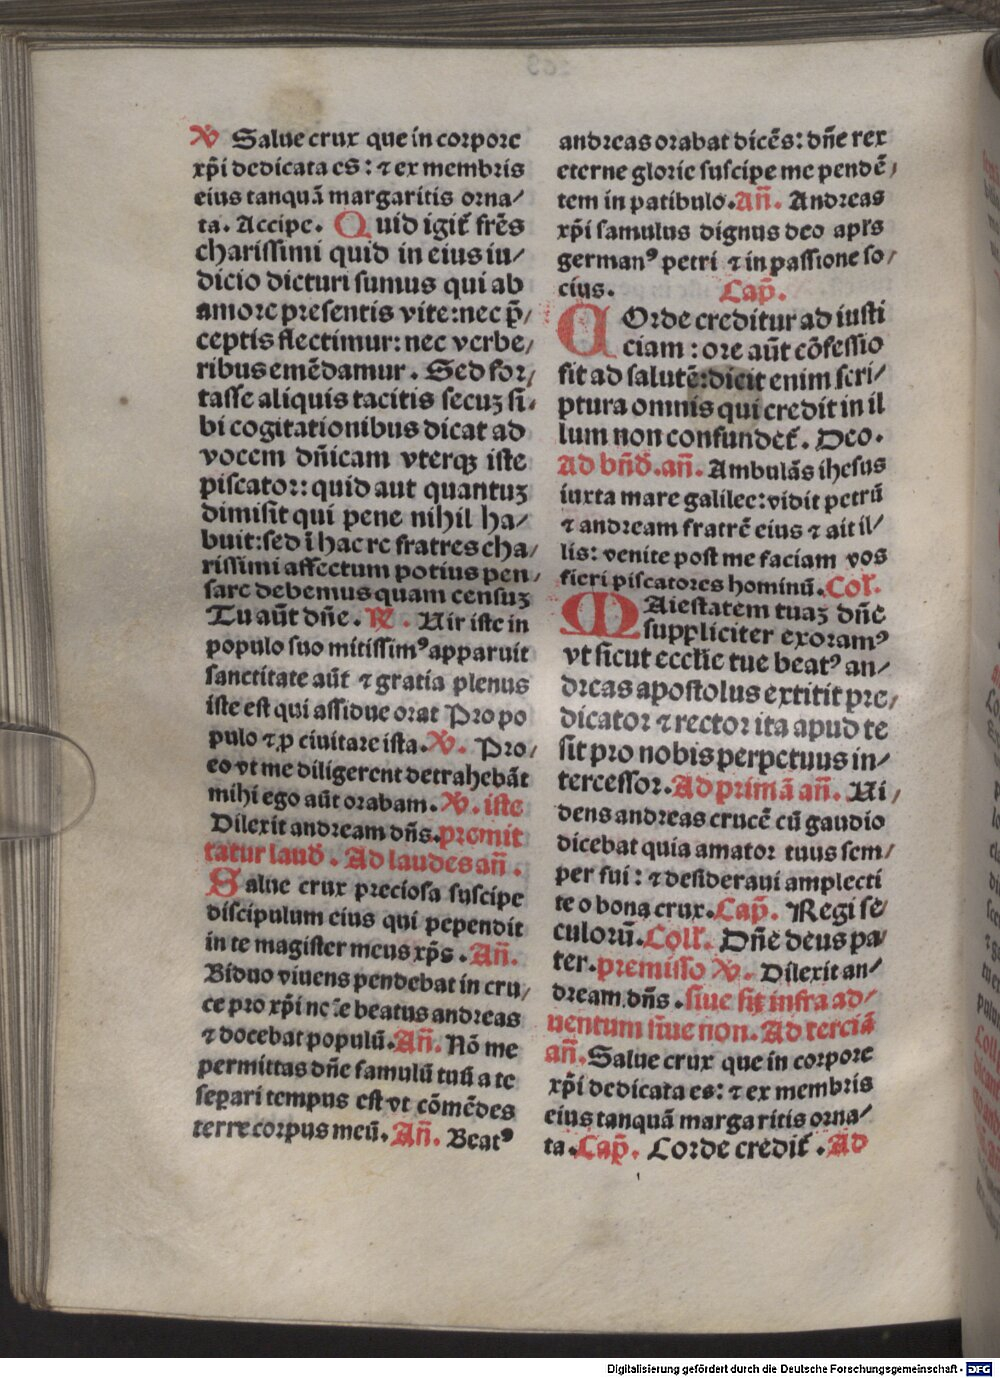 ℣ Salue crux que in corpore
xp̄i dedicata es: ⁊ ex membris
eius tanquā margaritis orna/
ta. Accipe. Quid igit᷑ fr̄es
charissimi quid in eius iu/
dicio dicturi sumus qui ab
amore presentis vite:nec p̄/
ceptis flectimur: nec verbe/
ribus emēdamur. Sed for/
tasse aliquis tacitis secuꝫ si/
bi cogitationibus dicat ad
vocem dn̄icam vterqꝫ iste
piscator: quid aut quantuꝫ
dimisit qui pene nihil ha/
buit:sed ī hac re fratres cha/
rissimi affectum potius pen/
sare debemus quam censuꝫ
Tu aūt dn̄e. ℟. Uir iste in
populo suo mitissimꝰ apparuit
sanctitate aūt ⁊ gratia plenus
iste est qui assidue orat Pro po
pulo ⁊ ꝓ ciuitate ista. ℣. Pro/
eo vt me diligerent detrahebāt
mihi ego aūt orabam. ℣. iste
Dilexit andream dn̄s. premit
tatur laud̄. Ad laudes an̄.
Salue crux preciosa suscipe
discipulum eius qui pependit
in te magister meus xp̄s. An̄.
Biduo viuens pendebat in cru/
ce pro xp̄i noīe beatus andreas
⁊ docebat populū. An̄. Nō me
permittas dn̄e famulū tuū a te
separi tempus est vt cōmēdes
terre corpus meū. An̄. Beatꝰ
andreas orabat dicēs: dn̄e rex
eterne glorie suscipe me pendē/
tem in patibulo. An̄. Andreas
xp̄i famulus dignus deo apl̄s
germanꝰ petri ⁊ in passione so/
cius. Cap̄.
COrde creditur ad iusti
ciam: ore aūt cōfessio
fit ad salutē:dicit enim scri/
ptura omnis qui credit in il
lum non confundet᷑. Deo.
Ad bn̄d̄. an̄. Ambulās ihesus
iuxta mare galilee:vidit petrū
⁊ andream fratrē eius ⁊ ait il/
lis: venite post me faciam vos
fieri piscatores hominū. Col̄.
MAiestatem tuaꝫ dn̄e
suppliciter exoramꝰ
vt sicut eccl̄ie tue beatꝰ an/
dreas apostolus extitit pre/
dicator ⁊ rector ita apud te
sit pro nobis perpetuus in/
tercessor. Ad primā an̄. Ui/
dens andreas crucē cū gaudio
dicebat quia amator tuus sem/
per fui: ⁊ desideraui amplecti
te o bona crux. Cap̄. Regi se/
culorū. Coll̄. Dn̄e deus pa/
ter. premisso ℣. Dilexit an/
dream dn̄s. siue sit infra ad/
uentum siue non. Ad terciā
an̄. Salue crux que in corpore
xp̄i dedicata es: ⁊ ex membris
eius tanquā margaritis orna/
ta. Cap̄. Corde credit᷑. Ad
Digitalisierung gefördert durch die Deutsche Forschungsgemeinschaft - DFG